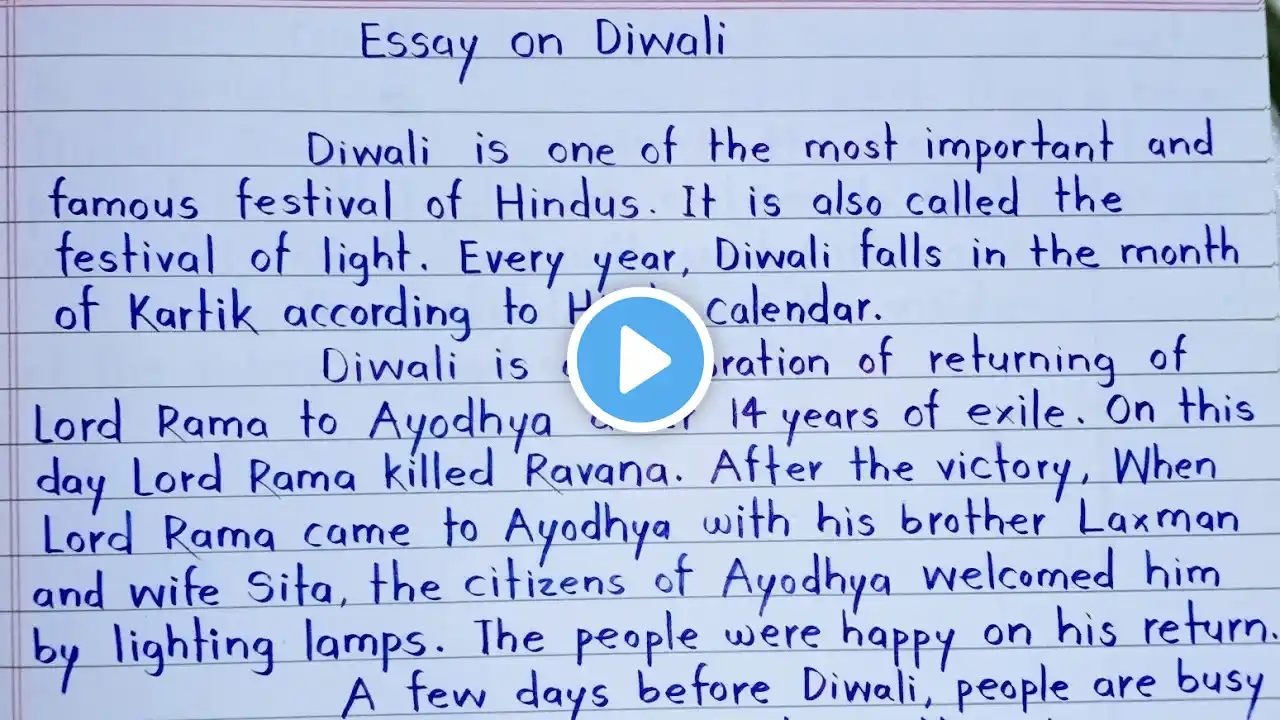 Essay on Diwali
Diwali is one of the most important and
famous festival of Hindus. It is also called the
festival of light. Every year, Diwali falls in the month
of Kartik according to calendar.
Diwali is of returning of
Lord Rama to Ayodhya 14 years of exile. On this
day Lord Rama killed Ravana. After the victory, When
Lord Rama came to Ayodhya with his brother Laxman
and wife Sita, the citizens of Ayodhya welcomed him
by lighting lamps. The people were happy on his return.
A few days before Diwali, people are busy